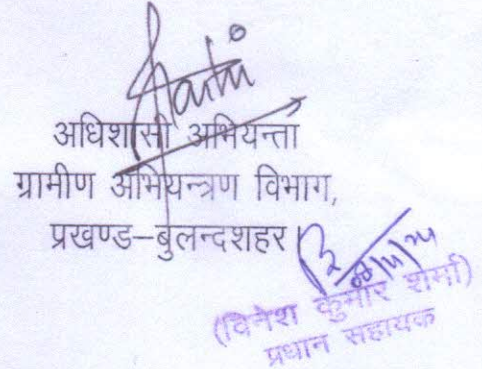 अधिशासी अभियन्ता
ग्रामीण अभियन्त्रण विभाग,
प्रखण्ड–बुलन्दशहर।
(विनेश कुमार शर्मा)
प्रधान सहायक